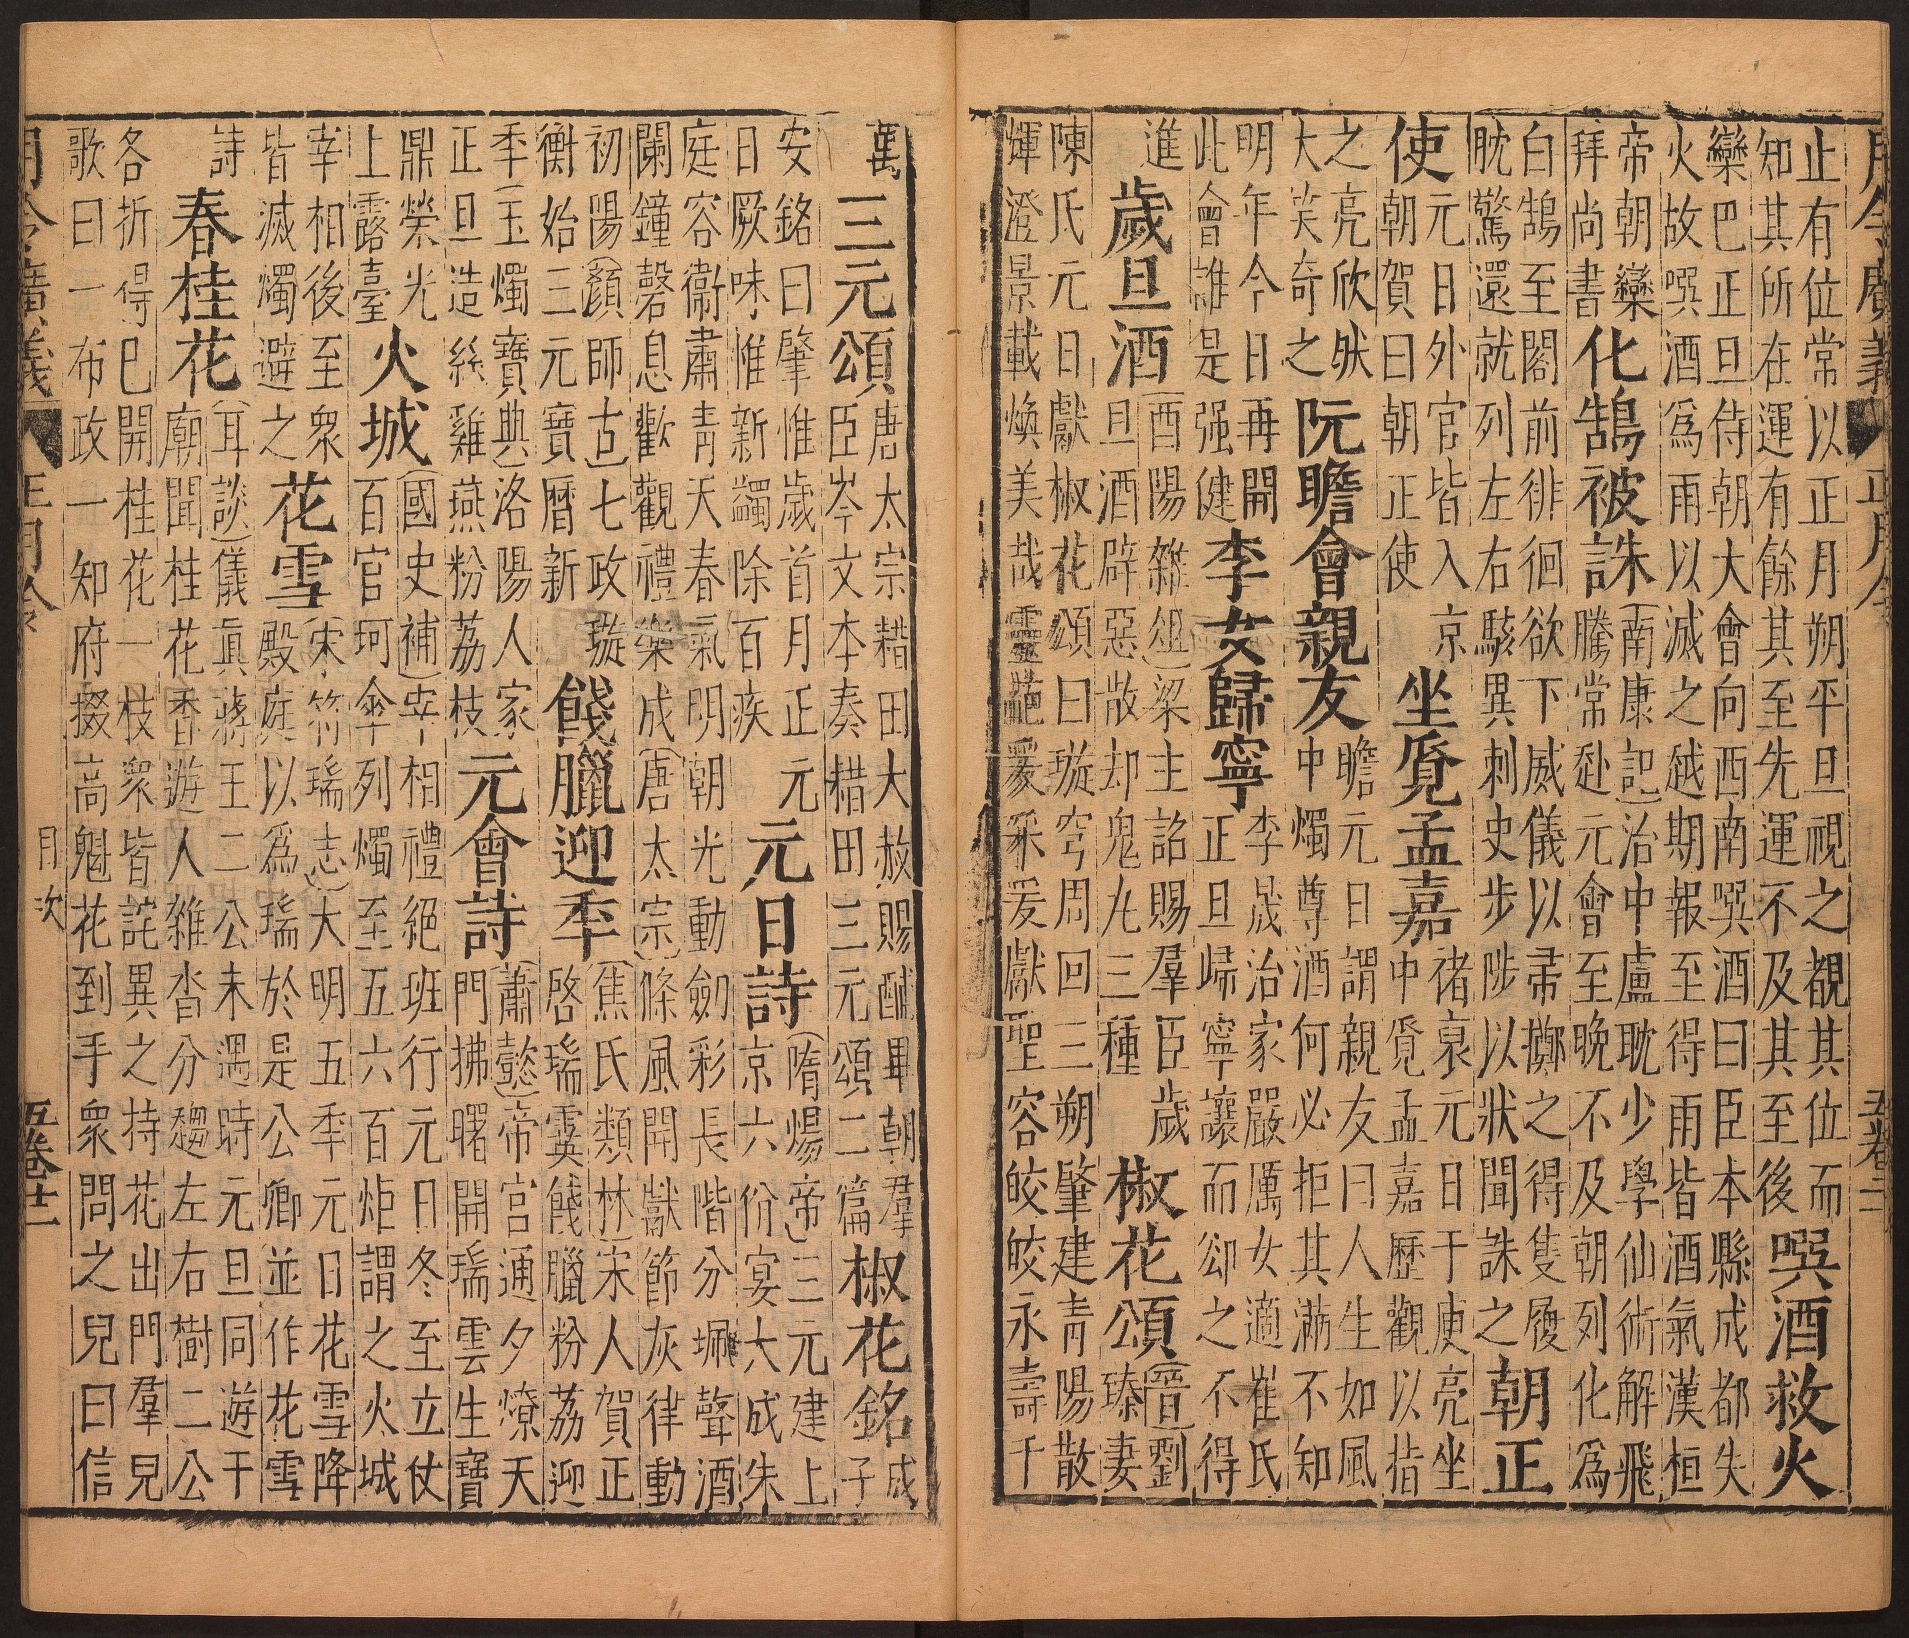 月令廣義 正月令 五卷
止有位常以正月朔平旦視之覩其位而
知其所在運有餘其至先運不及其至後
噀酒救火
欒巴正旦侍朝大會向西南噀酒曰臣本縣成都失
火故噀酒爲雨以滅之越期報至得雨皆酒氣漢桓
帝朝欒
拜尚書
化鵠被誅
〔南康記〕治中盧耽少學仙術解飛
騰常赴元會至晚不及朝列化爲
白鵠至閣前徘徊欲下威儀以帚擲之得隻履
耽驚還就列左右駭異刺史步陟以狀聞誅之
朝正
使
元日外官皆入京
朝賀曰朝正使
坐覓孟嘉
褚裒元日于庾亮坐
中覓孟嘉歷觀以指
之亮欣然
大笑奇之
阮瞻會親友
瞻元日謂親友曰人生如風
中燭尊酒何必拒其滿不知
明年今日再開
此會誰是强健
李女歸寧
李晟治家嚴厲女適崔氏
正旦歸寧讓而卻之不得
進
歲旦酒
〔酉陽雜俎〕梁主詔賜羣臣歲
旦酒辟惡散却鬼丸三種
椒花頌
〔晉〕劉
臻妻
陳氏元日獻椒花頌曰璇穹周回三朔肇建青陽散
輝澄景載煥美哉靈葩爰采爰獻聖容皎皎永壽千
萬
三元頌
唐太宗耤田大赦賜酺畢朝羣
臣岑文本奏耤田三元頌二篇
椒花銘
成
子
安銘曰肇惟歲首月正元
日厥味惟新蠲除百疾
元日詩
〔隋煬帝〕三元建上
京六佾宴大成朱
庭容衛肅青天春氣明朝光動劍彩長階分珮聲酒
闌鐘磬息歡觀禮樂成〔唐太宗〕條風開獻節灰律動
初陽〔顏師古〕七政璇
衡始三元寶曆新
餞臘迎季
〔焦氏類林〕宋人賀正
啓瑞霙餞臘粉荔迎
季〔玉燭寶典〕洛陽人家
正旦造絲雞燕粉荔枝
元會詩
〔蕭懿〕帝宮通夕燎天
門拂曙開瑞雲生寶
鼎榮光
上露臺
火城
〔國史補〕宰相禮絕班行元日冬至立仗
百官珂傘列燭至五六百炬謂之火城
宰相後至衆
皆滅燭避之
花雪
〔宋符瑞志〕大明五季元日花雪降
殿庭以爲瑞於是公卿並作花雪
詩
春桂花
〔耳談〕儀真蔣王二公未遇時元旦同遊于
廟聞桂花香遊人雜沓分趨左右樹二公
各折得巳開桂花一枝衆皆詫異之持花出門羣兒
歌曰一布政一知府掇高魁花到手衆問之兒曰信
月令廣義 正月令 月次 五卷